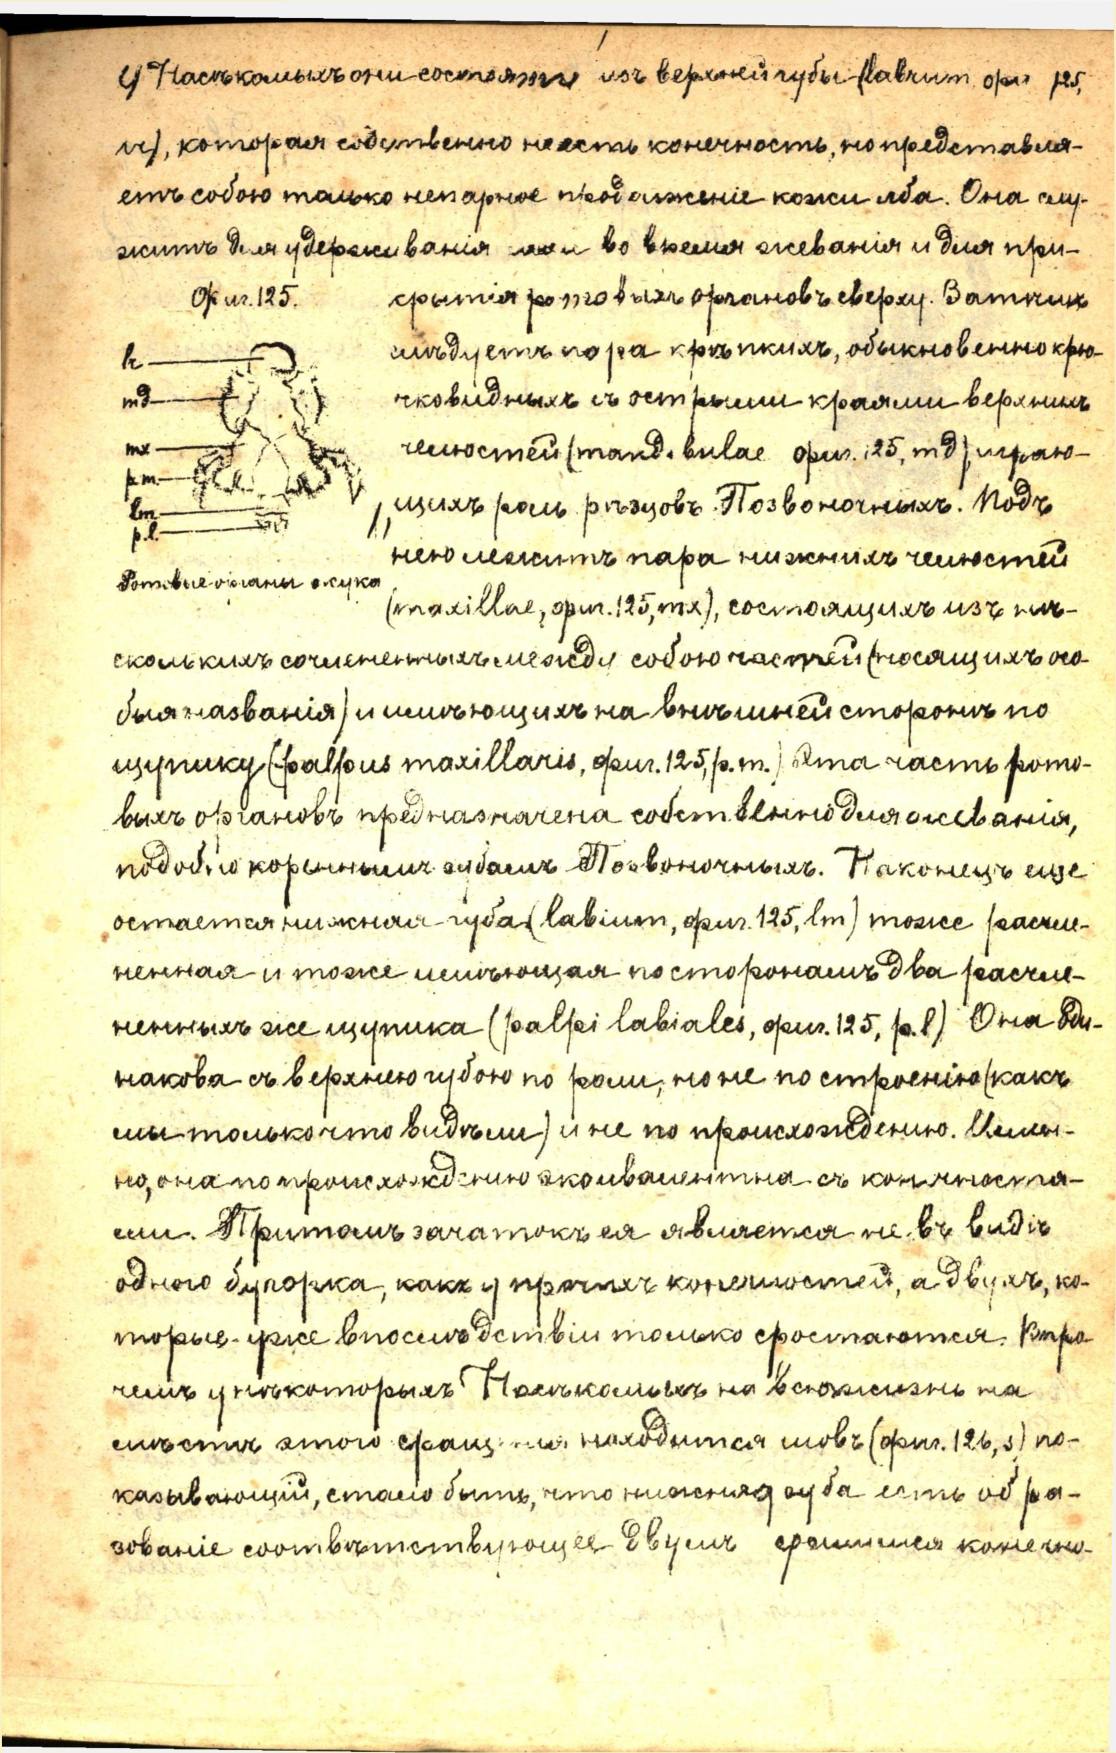 У Насѣкомыхъ они состоятъ изъ верхней губы (labrum фиг 125,
которая собственно не есть конечность, но представля-
етъ собою только непарное продолженiе кожи лба. Она слу-
житъ для удерживанiя во время жеванiя и для при-
Фиг. 125.
крытiя ротовыхъ органовъ сверху. Затѣмъ
слѣдуетъ пара крѣпкихъ, обыкновенно крю-
чковидныхъ съ острыми краями верхнихъ
челюстей (mandibulae фиг. 125, md), играю-
щихъ роль рѣзцовъ Позвоночныхъ. Подъ
нею лежитъ пара нижнихъ челюстей
(maxillae, фиг. 125, mx), состоящихъ изъ нѣ-
lr
md
mx
p.m.
lm
p.l.
Ротовые органы жука
сколькихъ сочлененныхъ между собою частей (носящихъ осо-
быя названiя) и имѣющихъ на внѣшней сторонѣ по
щупику (palpus maxillaris, фиг. 125, p.m.) Эта часть рото-
выхъ органовъ предназначена собственно для жеванiя,
подобно кореннымъ зубамъ Позвоночныхъ. Наконецъ еще
остается нижняя губа (labium, фиг. 125, lm) тоже расчле-
ненная и тоже имѣющая по сторонамъ два расчле-
ненныхъ же щупика (palpi labiales, фиг. 125, p.l) Она оди-
накова съ верхнею губою по роли, но не по строенiю (какъ
мы только что видѣли) и не по происхожденiю. Имен-
но, она по происхожденiю эквивалентна съ конечностя-
ми. Притомъ зачатокъ ея является не въ видѣ
одного бугорка, какъ у прочихъ конечностей, а двухъ, ко-
торые уже впослѣдствiи только сростаются. Впро
чемъ у нѣкоторыхъ Насѣкомыхъ на всю жизнь на
мѣстѣ этого сращенiя находится шовъ (фиг. 126, s) по-
казывающiй, стало быть, что нижняя губа есть обра-
зованiе соотвѣтствующее двумъ сросшимся конечно-